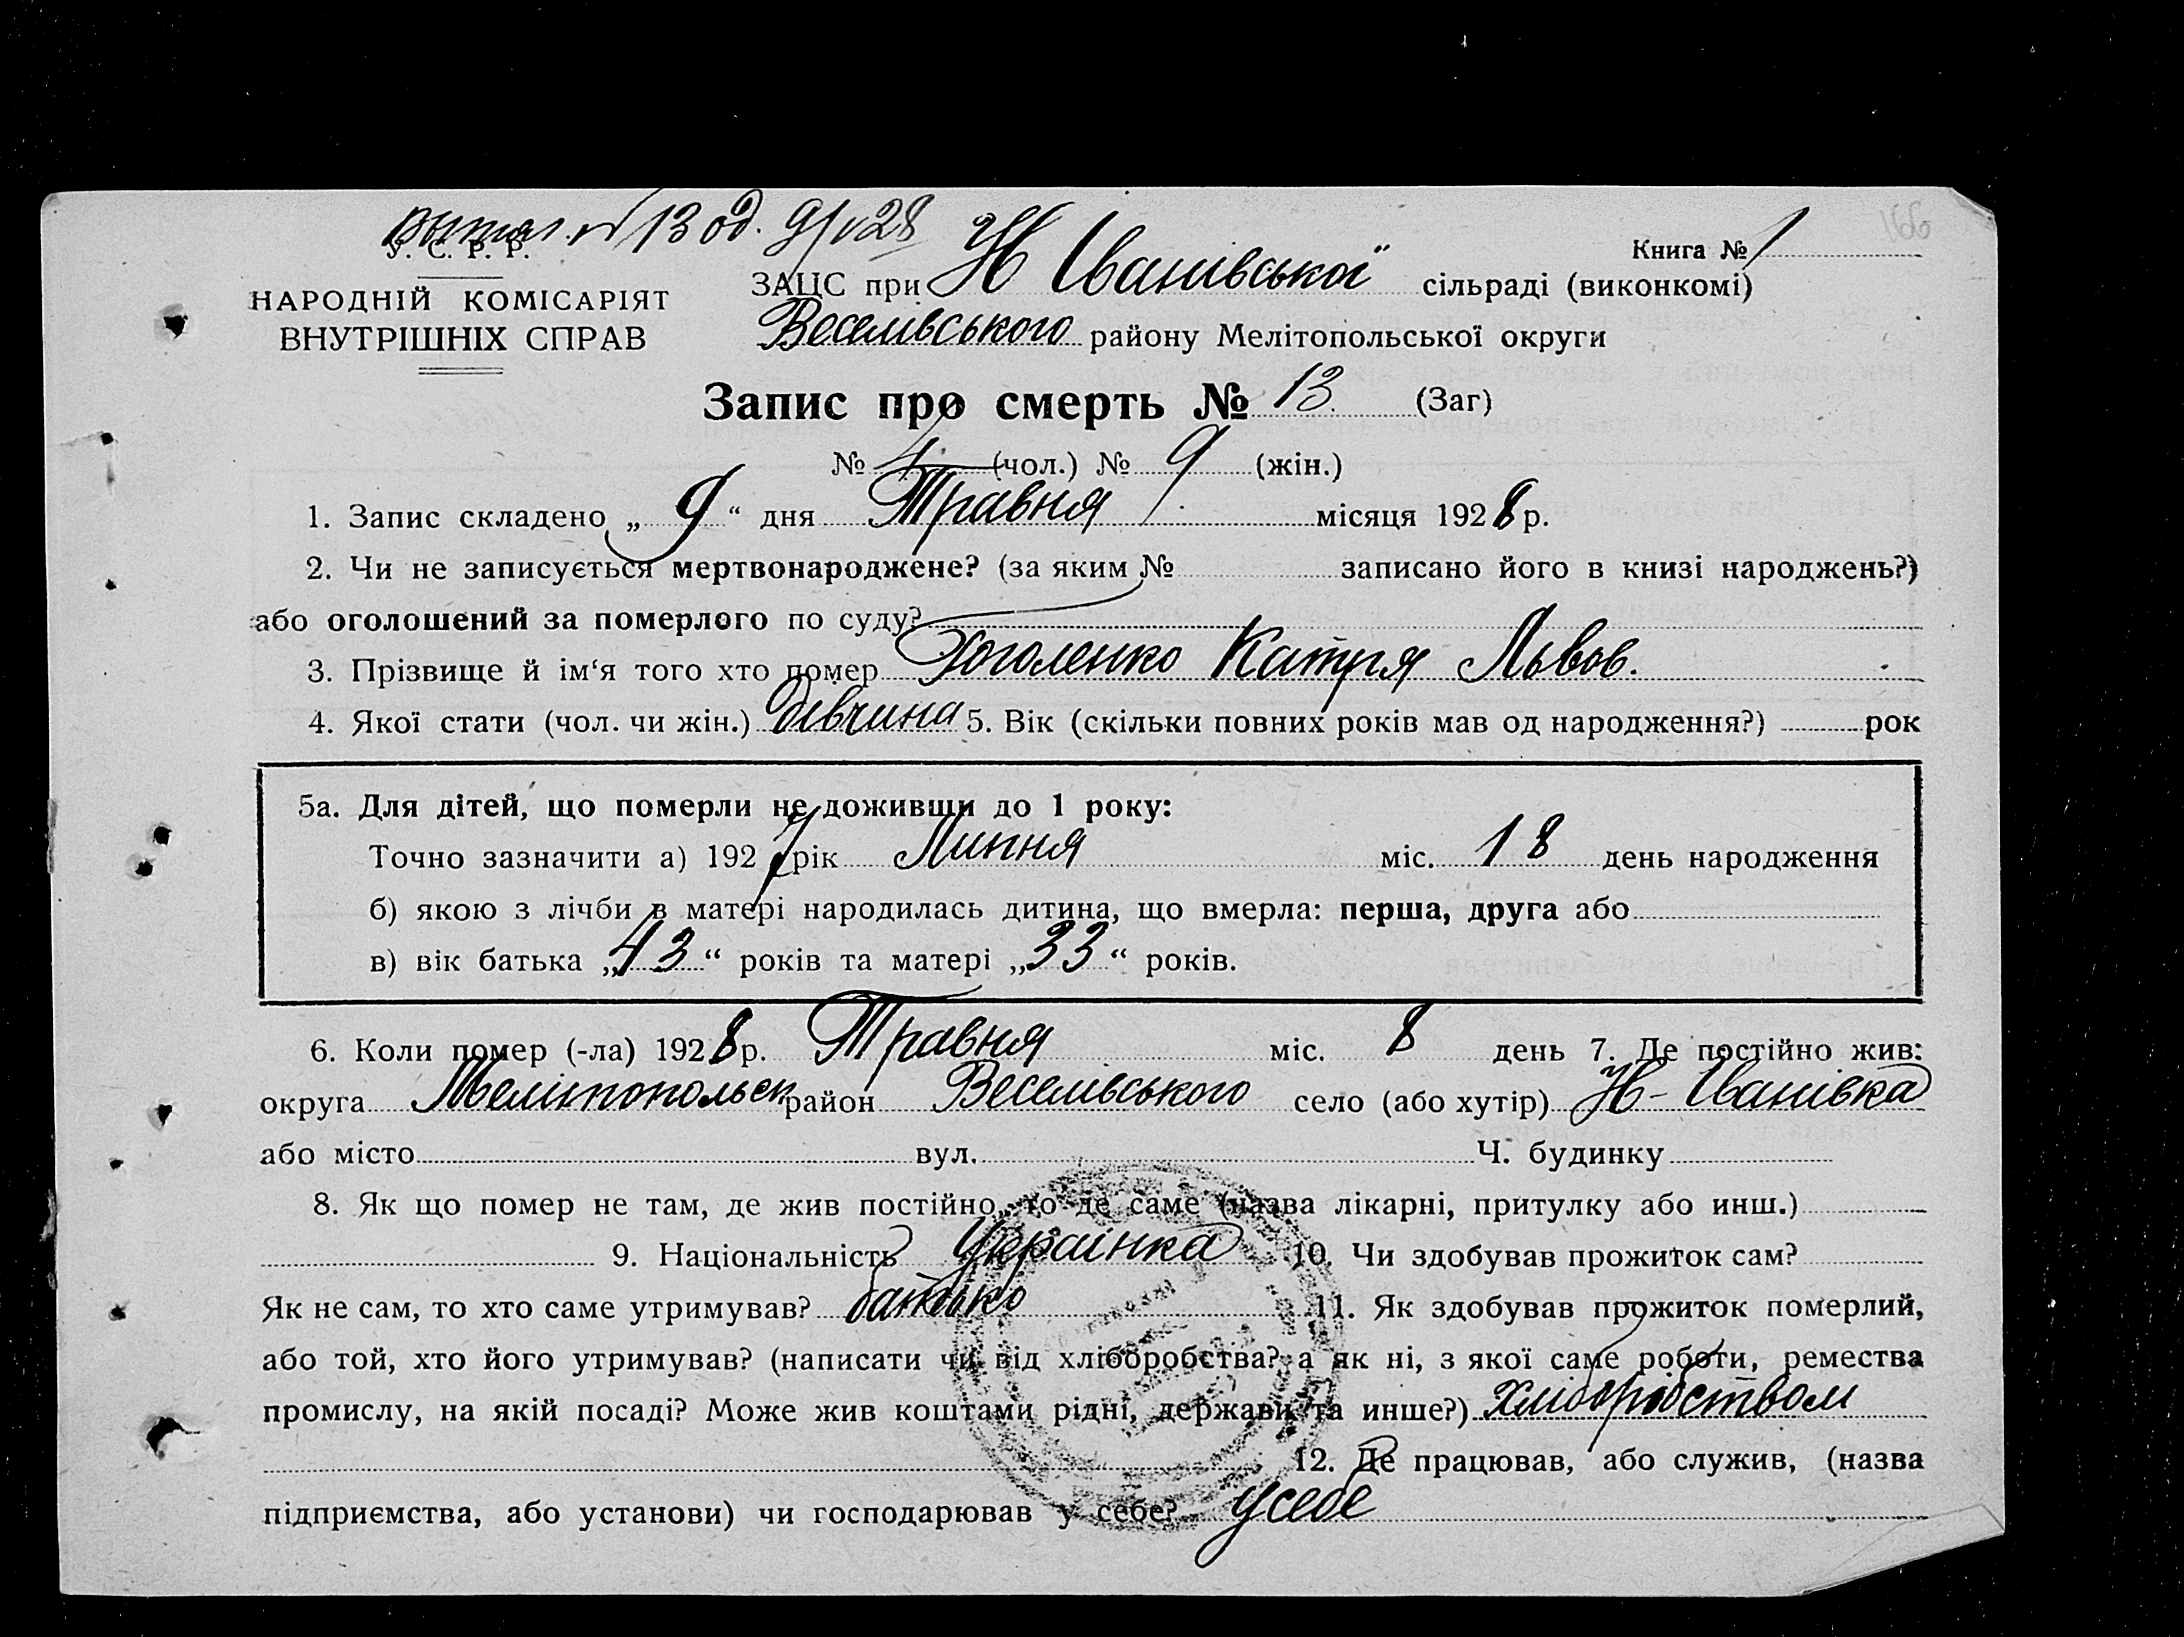 витяг. № 13 од. 9/V 28
166
У. С. Р. Р.
НАРОДНІЙ КОМІСАРІЯТ
ВНУТРІШНІХ СПРАВ
Книга № 1
ЗАЦС при Н Іванівської сільраді (виконкомі)
Веселівського району Мелітопольської округи
Запис про смерть № 13. (Заг)
№ 4. (чол.) № 9 (жін.)
1. Запис складено „ 9 “ дня Травня місяця 1928 р.
2. Чи не записується мертвонароджене? (за яким № записано його в книзі народжень?)
або оголошений за померлого по суду?
3. Прізвище й ім‘я того хто помер Гоголенко Катря Львов.
4. Якої стати (чол. чи жін.) дівчина 5. Вік (скільки повних років мав од народження?) рок
5а. Для дітей, що померли не доживши до 1 року:
Точно зазначити а) 1927 рік Липня міс. 18 день народження
б) якою з лічби в матері народилась дитина, що вмерла: перша, друга або
в) вік батька „43“ років та матері „33“ років.
6. Коли помер (-ла) 1928 р. Травня міс. 8 день 7. Де постійно жив:
округа Мелітопольськ район Веселівського село (або хутір) Н-Іванівка
або місто вул. Ч. будинку
8. Як що помер не там, де жив постійно, то де саме (назва лікарні, притулку або инш.)
9. Національність Українка 10. Чи здобував прожиток сам?
Як не сам, то хто саме утримував? батько 11. Як здобував прожиток померлий,
або той, хто його утримував? (написати чи від хліборобства? а як ні, з якої саме роботи, ремества
промислу, на якій посаді? Може жив коштами рідні, держави та инше?) Хліборобством
12. Де працював, або служив, (назва
підприємства, або установи) чи господарював у себе? у себе